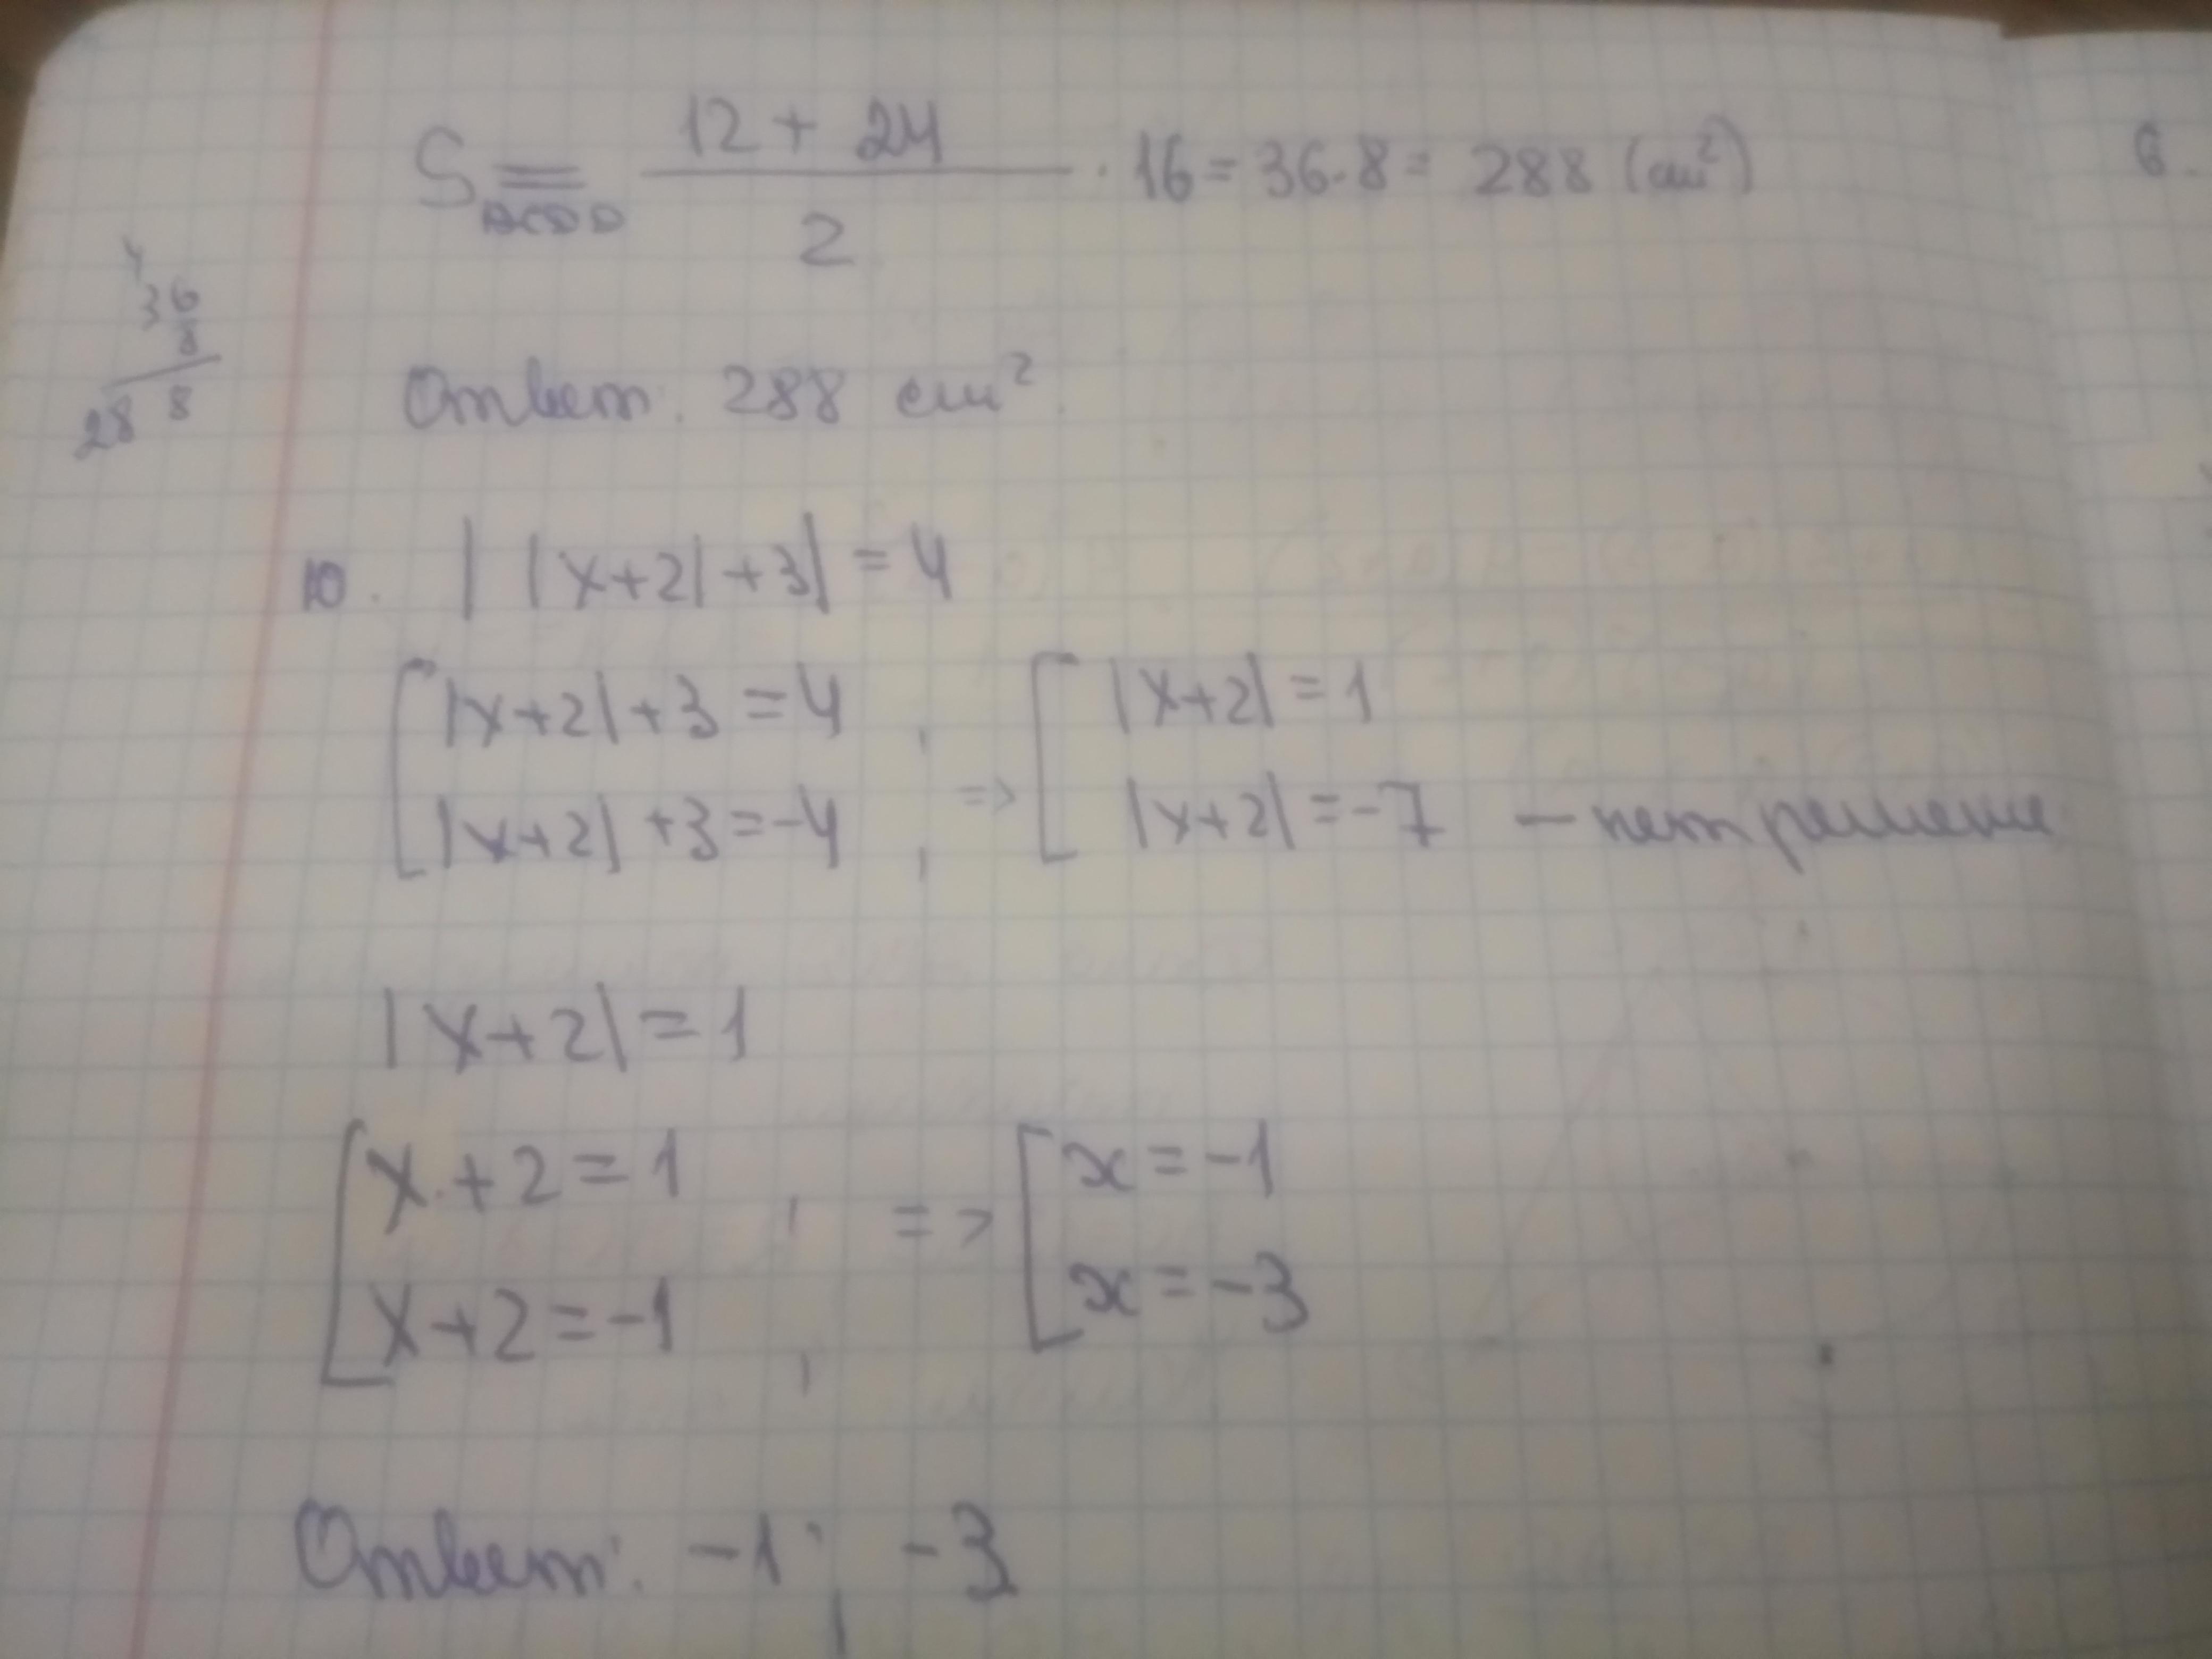 S = (12 + 24)/2 · 16 = 36·8 = 288 (см²)
4
36
8
288
Ответ. 288 см².
10. | |x+2|+3| = 4
[ |x+2|+3=4, |x+2|+3=-4, => [ |x+2|=1, |x+2|=-7 – нет
|x+2|=1
[ x+2=1, x+2=-1, => [ x=-1, x=-3
Ответ: -1; -3
6.